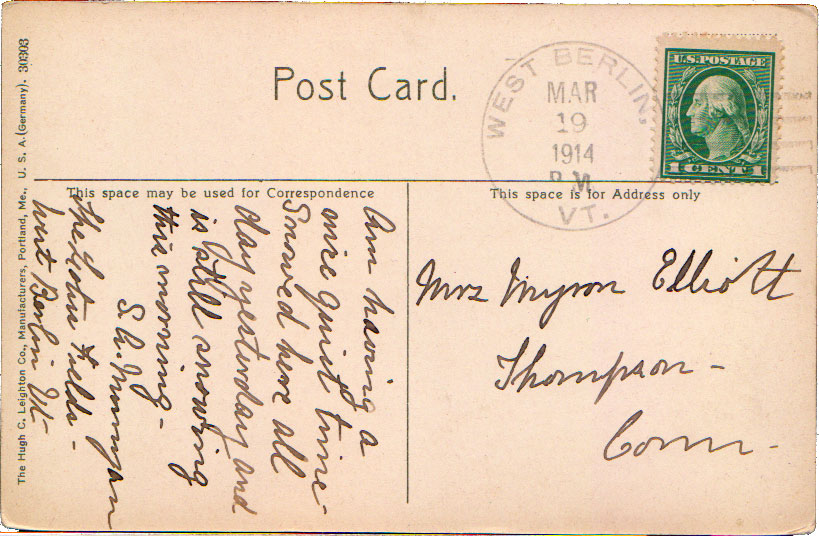 Post Card.
WEST BERLIN,
MAR
19
1914
P.M.
VT.
U.S. POSTAGE
1 CENT 1
This space may be used for Correspondence
This space is for Address only
Am having a
nice quiet time -
Snowed here all
day yesterday and
is still snowing
this morning -
S. A.
The
Fields -
West Berlin Vt -
Mrs Myron Elliott
Thompson -
Conn -
The Hugh C. Leighton Co., Manufacturers, Portland, Me., U. S. A. (Germany). 30303